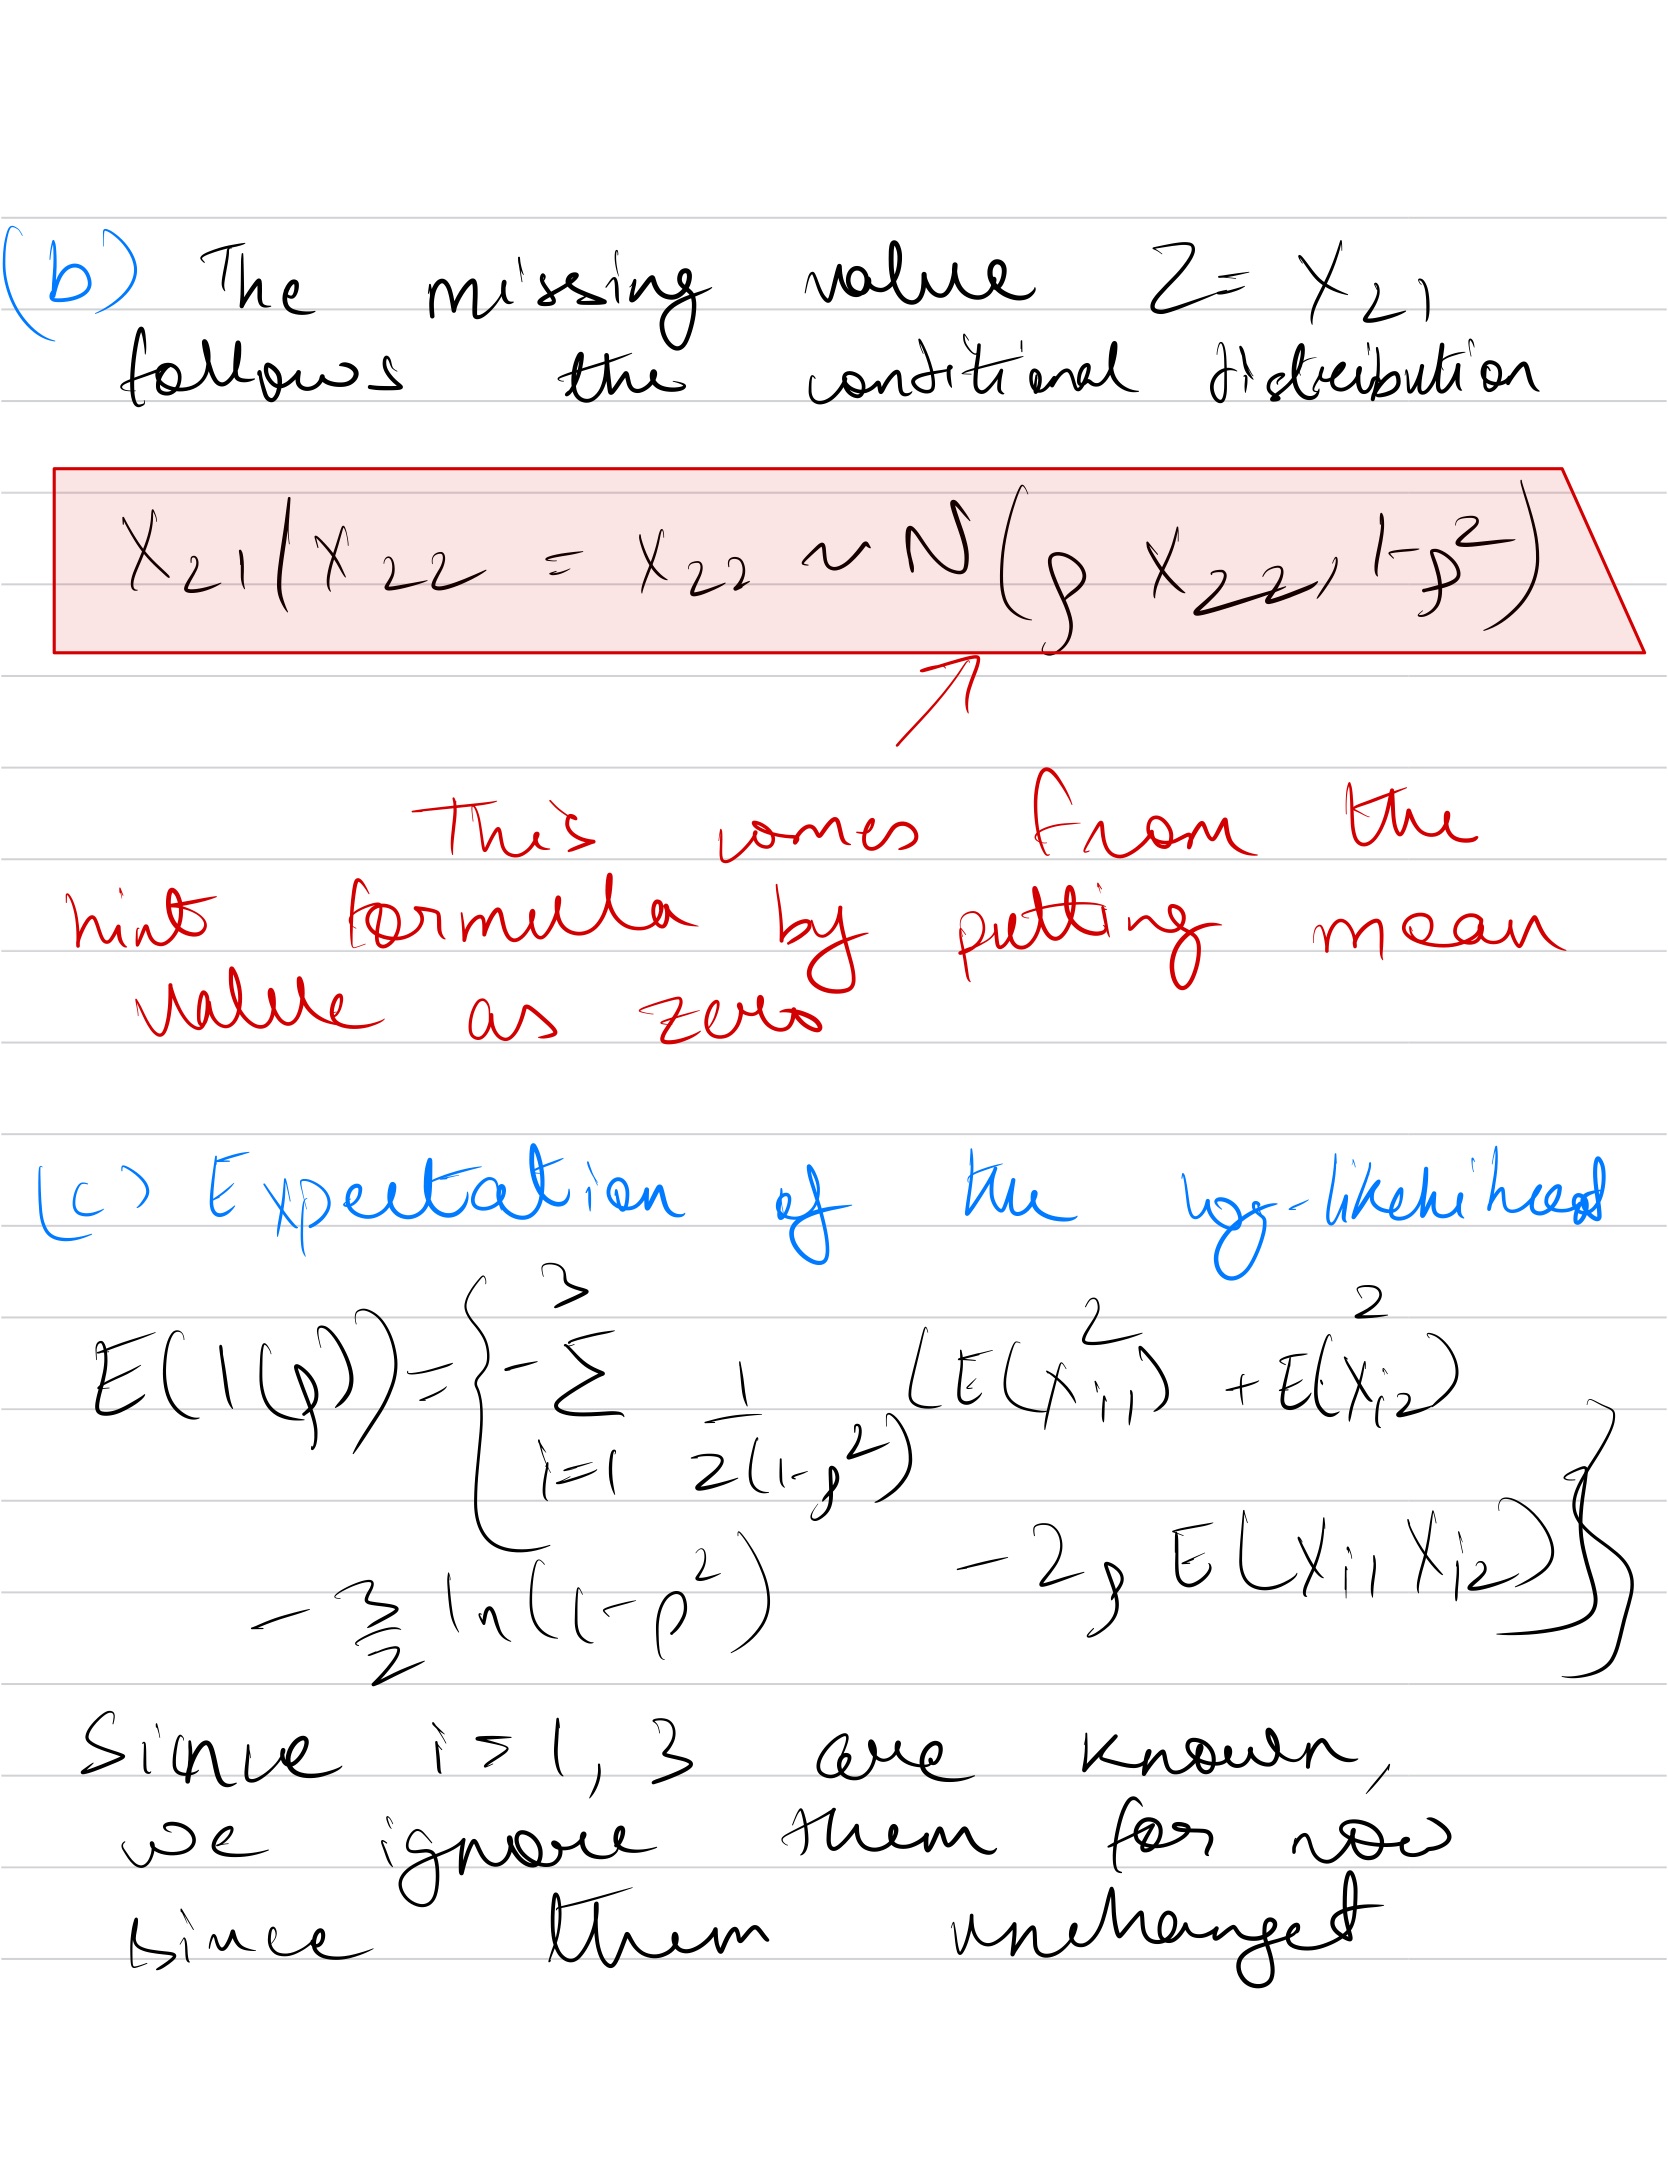 (b) The missing value Z = X₂₁
follows the conditional distribution
X₂₁ | X₂₂ = x₂₂ ~ N(ρ x₂₂, 1-ρ²)
This comes from the
hint formula by putting mean
value as zero
(c) Expectation of the log-likelihood
E(l(ρ)) = { - Σ_{i=1}^{3} 1/(2(1-ρ²)) (E(X_{i1}²) + E(X_{i2}²)
- 3/2 ln(1-ρ²) - 2ρ E(X_{i1} X_{i2})) }
Since i=1, 3 are known,
we ignore them for now
since them unchanged